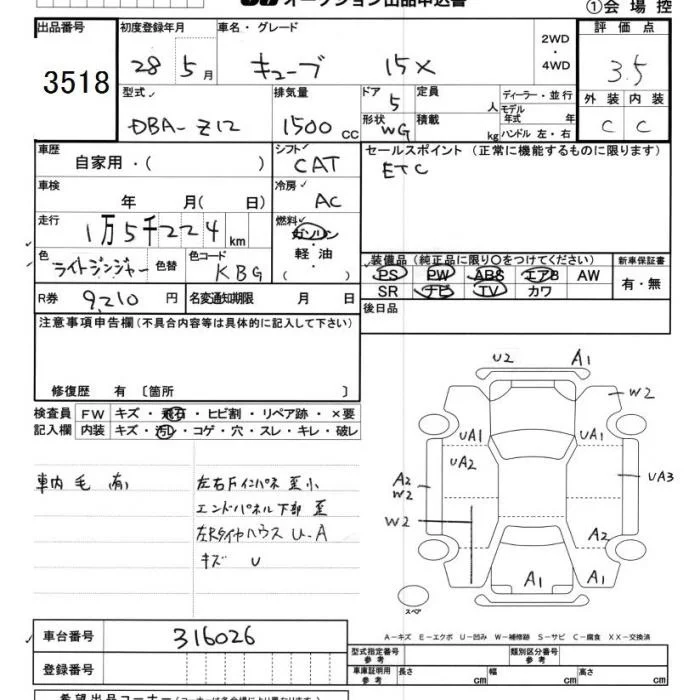 オークション出品申込書
①会場控
出品番号 初度登録年月 車名・グレード 2WD・4WD 評価点
3518 28 5月 キューブ 15X 3.5
型式 排気量 ドア 定員 ディーラー・並行 外装 内装
DBA-Z12 1500cc 5 人 モデル年式 年 C C
形状 WG 積載 kg ハンドル 左・右
車歴 自家用・( ) シフト CAT セールスポイント (正常に機能するものに限ります)
ETC
車検 年 月( 日) 冷房 AC
走行 1万5千224km 燃料 ガソリン
軽油
( )
色 ライトジンジャー 色替 色コード KBG
装備品 (純正品に限り○をつけてください) 新車保証書
PS PW ABS エアB AW 有・無
SR ナビ TV カワ
R券 9,210円 名変通知期限 月 日 後日品
注意事項申告欄(不具合内容等は具体的に記入して下さい)
修復歴 有 〔箇所 〕
検査員記入欄 FW キズ・飛石・ヒビ割・リペア跡・×要
内装 キズ・汚レ・コゲ・穴・スレ・キレ・破レ
車内毛有 左右Fインパネ歪小
エンドパネル下部歪
左Rタイヤハウス U-A
キズ U
U2 A1
W2
UA1 UA1
UA2 UA3
A2
W2
W2
A2
A1 A1
スペア
A-キズ E-エクボ U-凹み W-補修跡 S-サビ C-腐食 XX-交換済
車台番号 316026
型式指定番号 参考 類別区分番号 参考
登録番号
車庫証明用 参考 長さ cm 幅 cm 高さ cm
希望出品コーナー